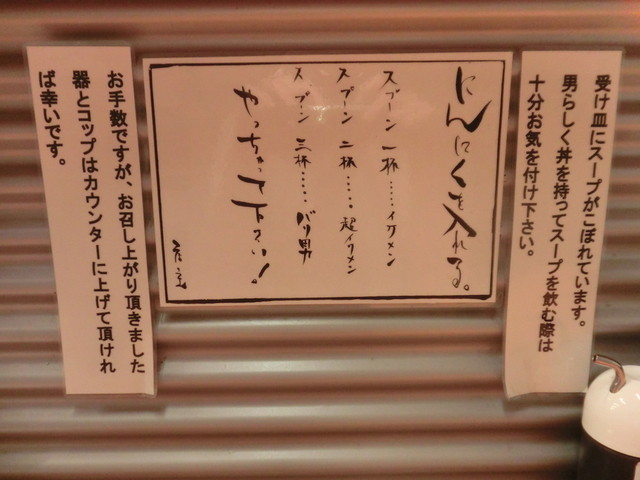 受け皿にスープがこぼれています。
男らしく丼を持ってスープを飲む際は
十分お気を付け下さい。
にんにくを入れる。
スプーン 一杯……イケメン
スプーン 二杯……超イケメン
スプーン 三杯……バリ男
やっちゃって下さい!
店主
お手数ですが、お召し上がり頂きました
器とコップはカウンターに上げて頂けれ
ば幸いです。